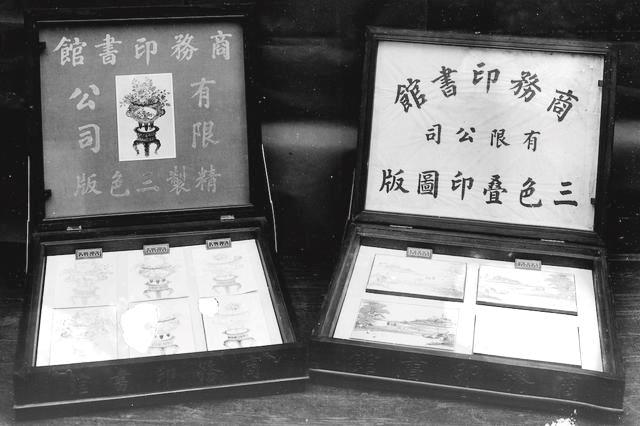 商務印書館
有限
公司
精製三色版
商務印書館
商務印書館
有限公司
三色叠印圖版